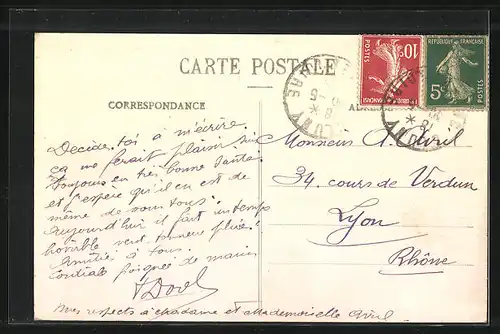 CARTE POSTALE
CORRESPONDANCE
POSTES 10c
RÉPUBLIQUE FRANÇAISE
5c POSTES
CLUNY
Decide toi à m'écrire
ça me ferait plaisir
toujours en très bonne santé
et j'espère qu'il en est de
même de vous tous.
Aujourd'hui il fait un temps
horrible vent tonnerre pluie!
Amitiés à tous.
Cordiale poignée de mains
Mes respects à Madame et Mademoiselle Avril
Monsieur A. Avril
34, cours de Verdun
Lyon
Rhône